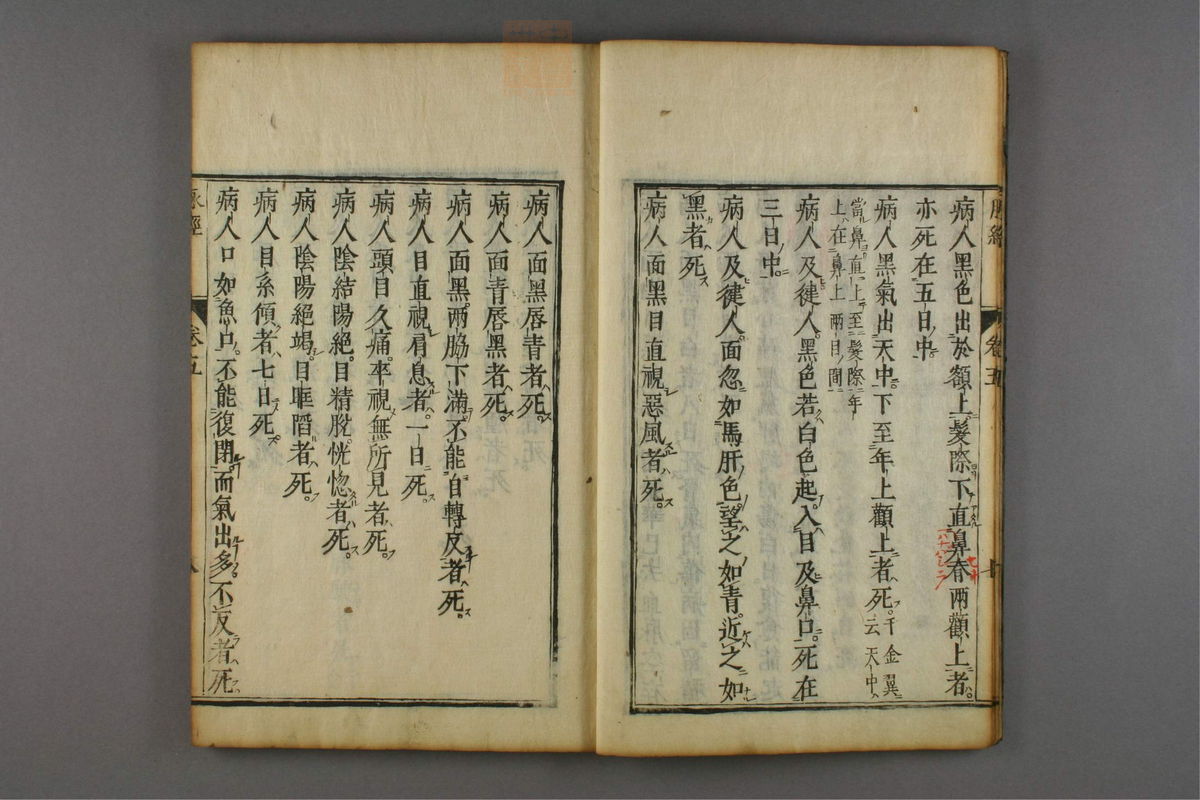 病人黑色出於額上髮際下直鼻脊兩顴上者
亦死在五日中
病人黑氣出天中下至年上顴上者死千金翼云天中
當鼻直上至髮際年
上在鼻上兩目間
病人及健人黑色若白色起入目及鼻口死在
三日中
病人及健人面忽如馬肝色望之如青近之如
黑者死
病人面黑目直視惡風者死
病人面黑唇青者死
病人面青唇黑者死
病人面黑兩脇下滿不能自轉反者死
病人目直視肩息者一日死
病人頭目久痛卒視無所見者死
病人陰結陽絕目精脫恍惚者死
病人陰陽絕竭目眶陷者死
病人目系傾者七日死
病人口如魚口不能復閉而氣出多不反者死
脉經
卷五